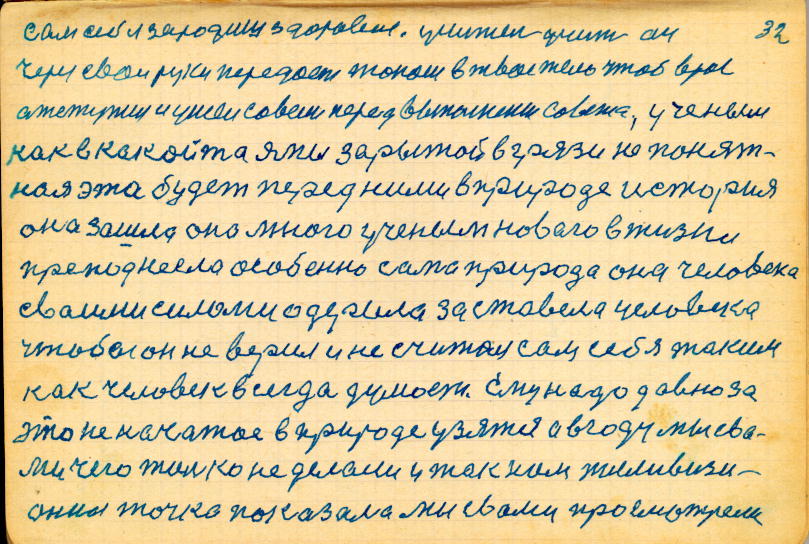 сам себя зародиш здоровем. учител учит он 32
через свои руки передост током в твое тело чтоб в рос
а тетушки и ушои совети перед выполнении совета, ученым
как в какойта ямы зарытой в грязи не понят-
ная эта будет перед ними в природе история
она зашла она много ученым новаго в жизни
преподнесла особенно сама природа она человека
сваими силоми одержла заставела человека
чтобы он не верил и не считал сам себя таким
как человек всегда думост. Ему надо давно за
это не начатое в природе узятся авгоду мы сва-
ми чего толко не делали и так нам тиливизи-
онноя точка показала мы свами просмотрели